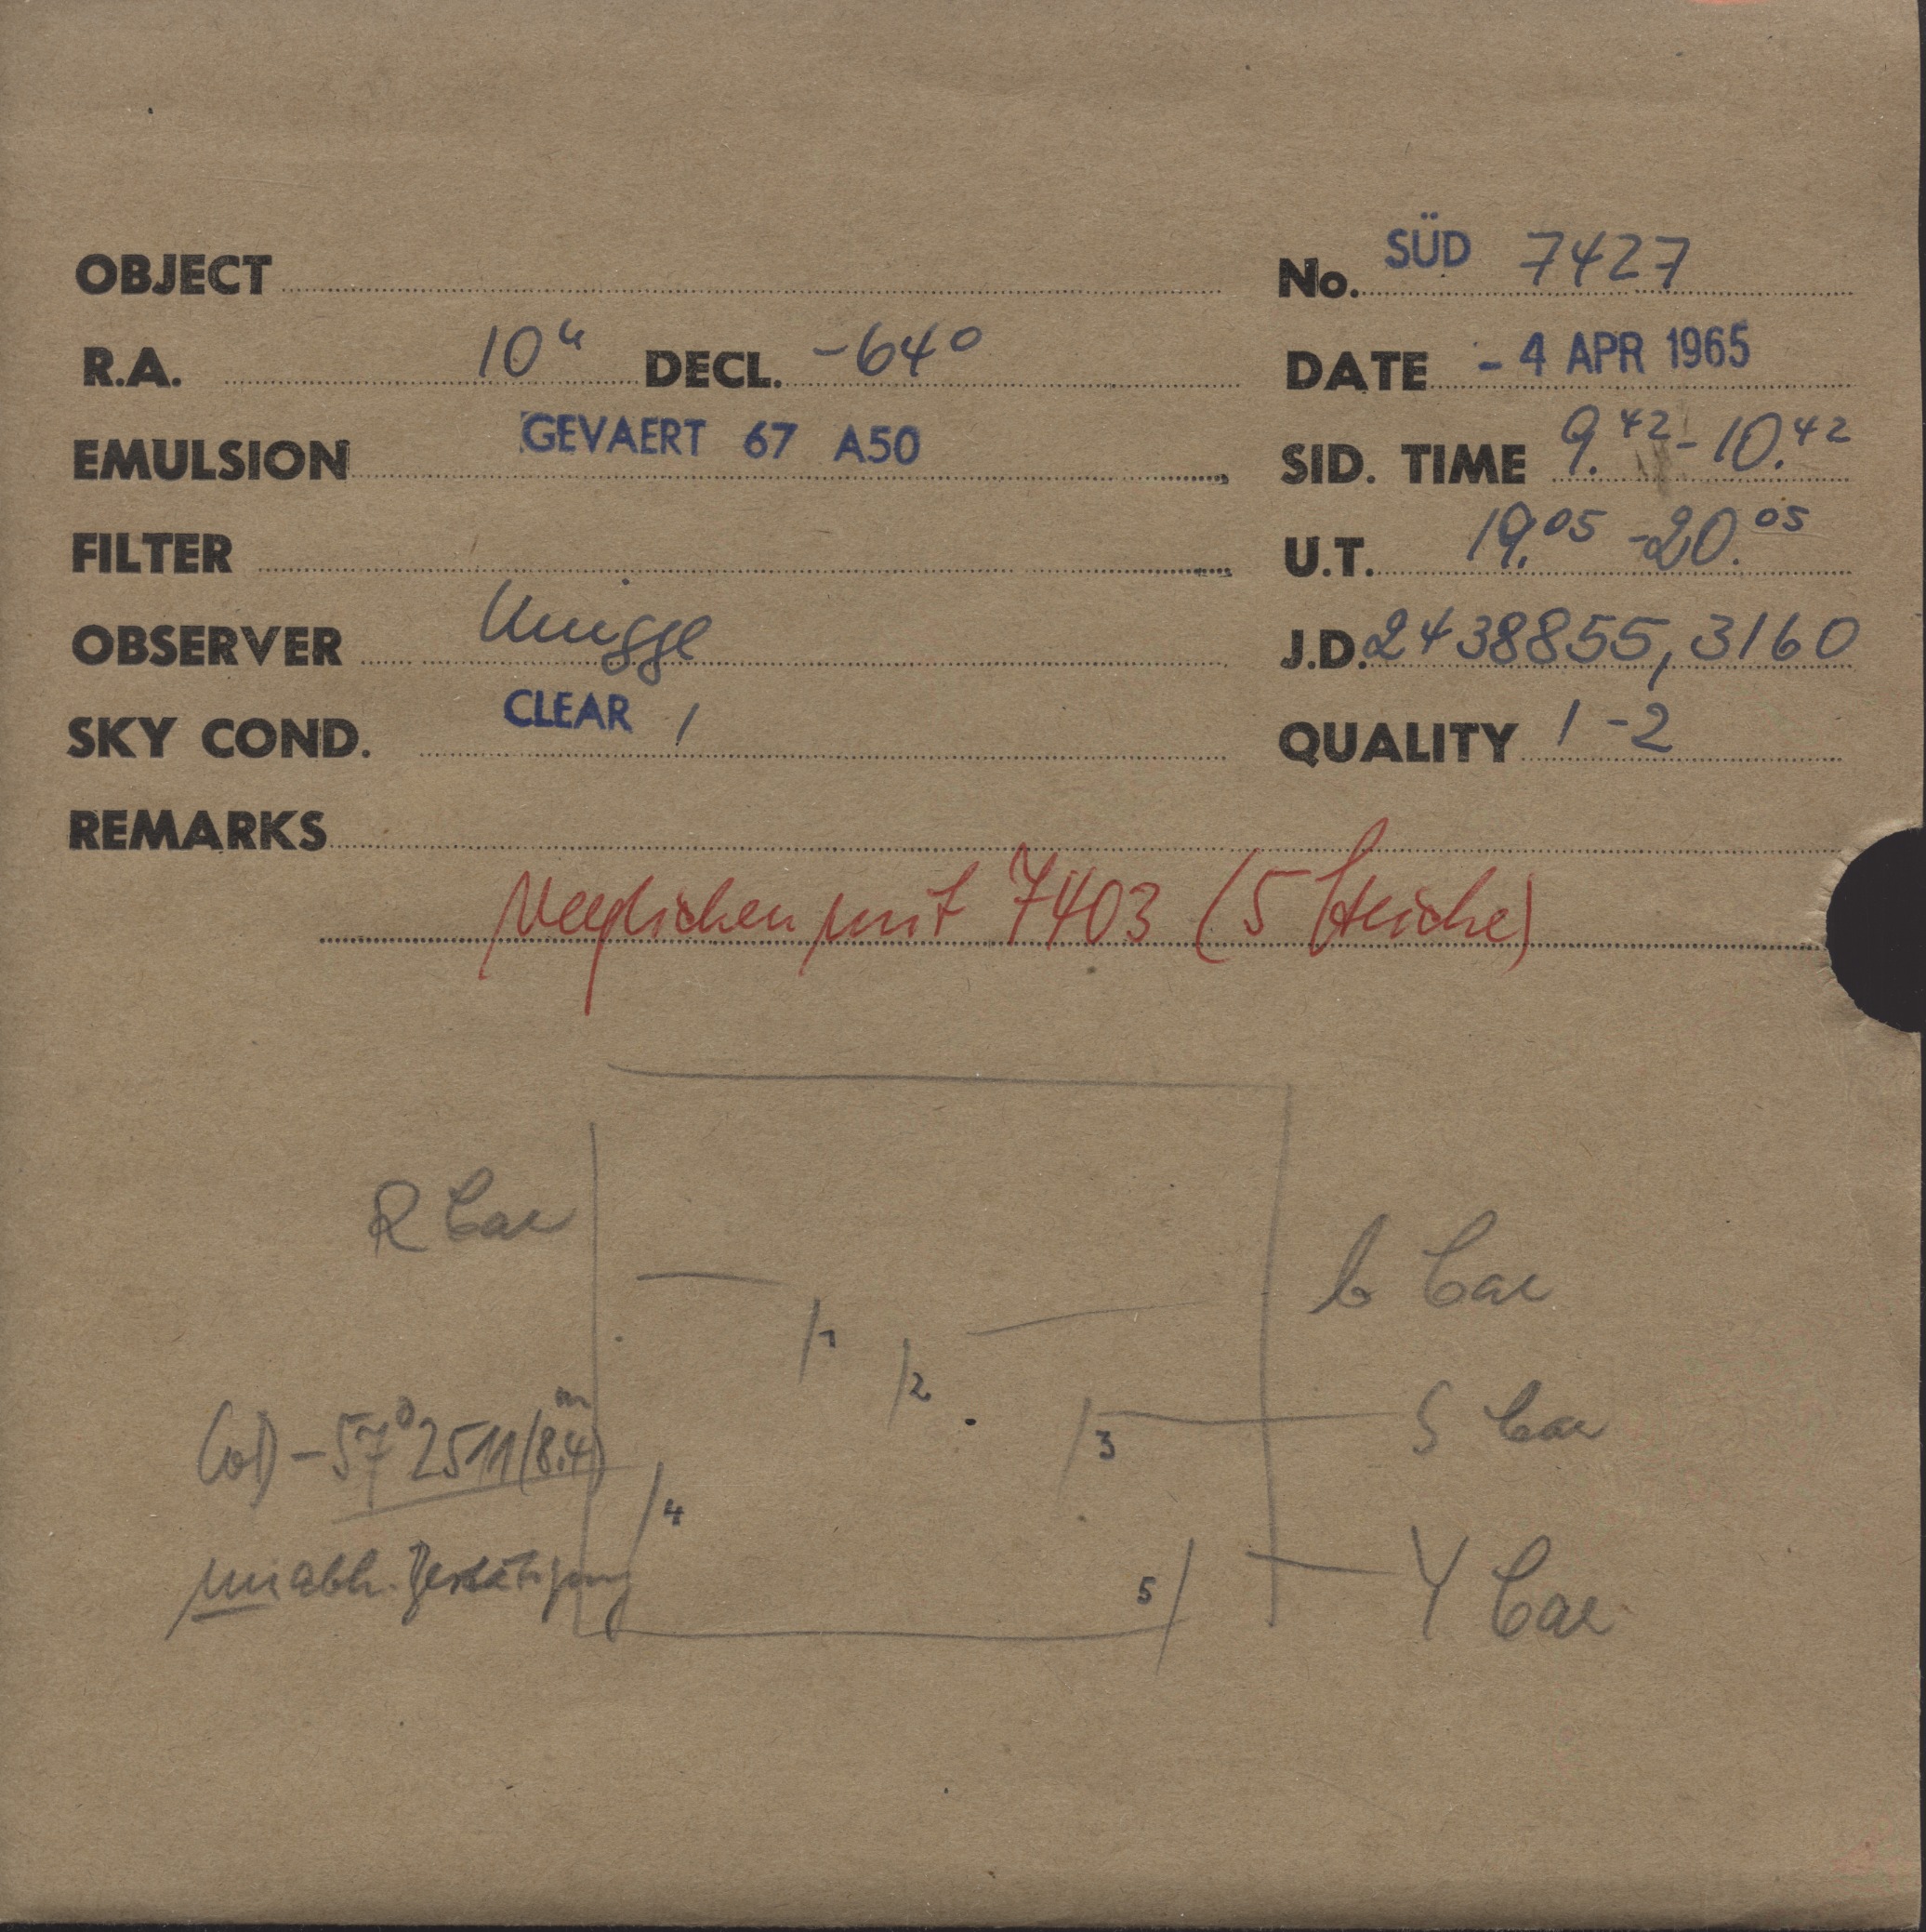 OBJECT
No. SÜD 7427
R.A. 10h DECL. -64°
DATE - 4 APR 1965
EMULSION GEVAERT 67 A50
SID. TIME 9.42 - 10.42
FILTER
U.T. 19.05 - 20.05
OBSERVER Knigge
J.D. 2438855,3160
SKY COND. CLEAR 1
QUALITY 1-2
REMARKS
Verglichen mit 7403 (5 Striche)
R Car
l Car
1
2
S Car
3
CoD -57° 2511 (8.4m)
4
unabh. Bestätigung
5
Y Car